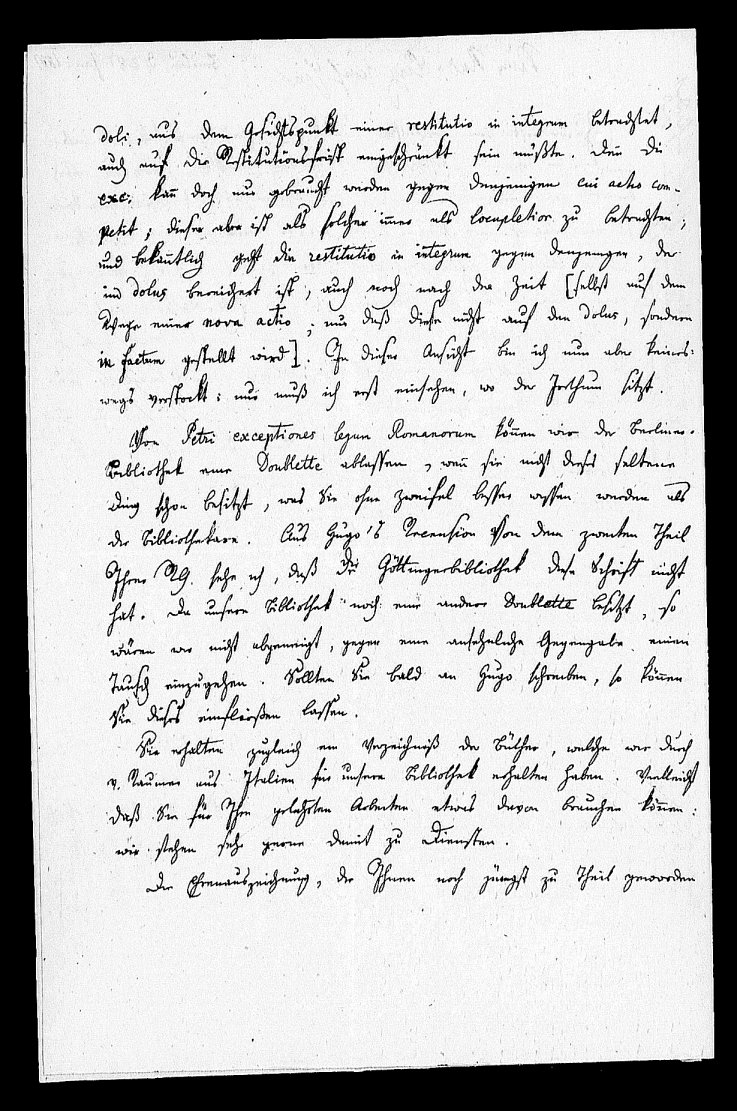 doli, aus dem Gesichtspunkt einer restitutio in integrum betrachtet,
auch auf die Restitutionsfrist eingeschränkt sein müßte. Den̄ die
exc. kan̄ doch nur gebraucht werden gegen denjenigen cui actio com-
petit; dieser aber ist als solcher im̄er als locupletior zu betrachten;
und bekan̄tlich geht die restitutio in integrum gegen denjenigen, der
im dolus bereichert ist, auch noch nach der Zeit [selbst auf dem
Wege einer nova actio, nur daß diese nicht auf den dolus, sondern
in factum gestellt wird]. In dieser Ansicht bin ich nun aber keines-
wegs verstockt: nur muß ich erst einsehen, wo der Irthum sitzt.
Von Petri exceptiones legum Romanorum kön̄en wir der Berliner-
Bibliothek eine Doublette ablassen, wen̄ sie nicht dieses seltene
Ding schon besitzt, was Sie ohne Zweifel besser wissen werden als
die Bibliothekare. Aus Hugo's Recension von dem zweiten Theil
Ihrer RG. sehe ich, daß die Göttingerbibliothek diese Schrift nicht
hat. Da unsere Bibliothek noch eine andere Doublette besitzt, so
wären wir nicht abgeneigt, gegen eine ansehnliche Gegengabe einen
Tausch einzugehen. Sollten Sie bald an Hugo schreiben, so kön̄en
Sie dieses einfließen lassen.
Sie erhalten zugleich ein Verzeichniß der Bücher, welche wir durch
v. Raumer aus Italien für unsere Bibliothek erhalten haben. Vielleicht
daß Sie für Ihre gelehrten Arbeiten etwas davon brauchen kön̄en:
wir stehen sehr gerne damit zu Diensten.
Die Ehrenauszeichnung, die Ihnen noch jüngst zu Theil geworden